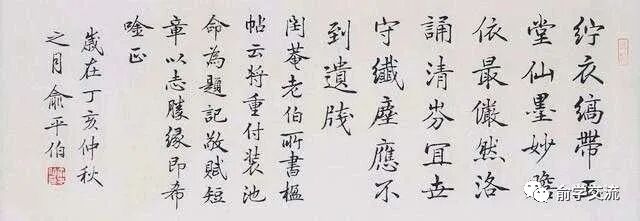 紵衣縞帶玉
堂仙墨妙瞻
依最儼然洛
誦清芬冝世
守纖塵應不
到遺牋
閏菴老伯所書楹
帖云將重付裝池
命為題記敬賦短
章以志勝緣即希
唫正
歲在丁亥仲秋
之月俞平伯
俞学交流